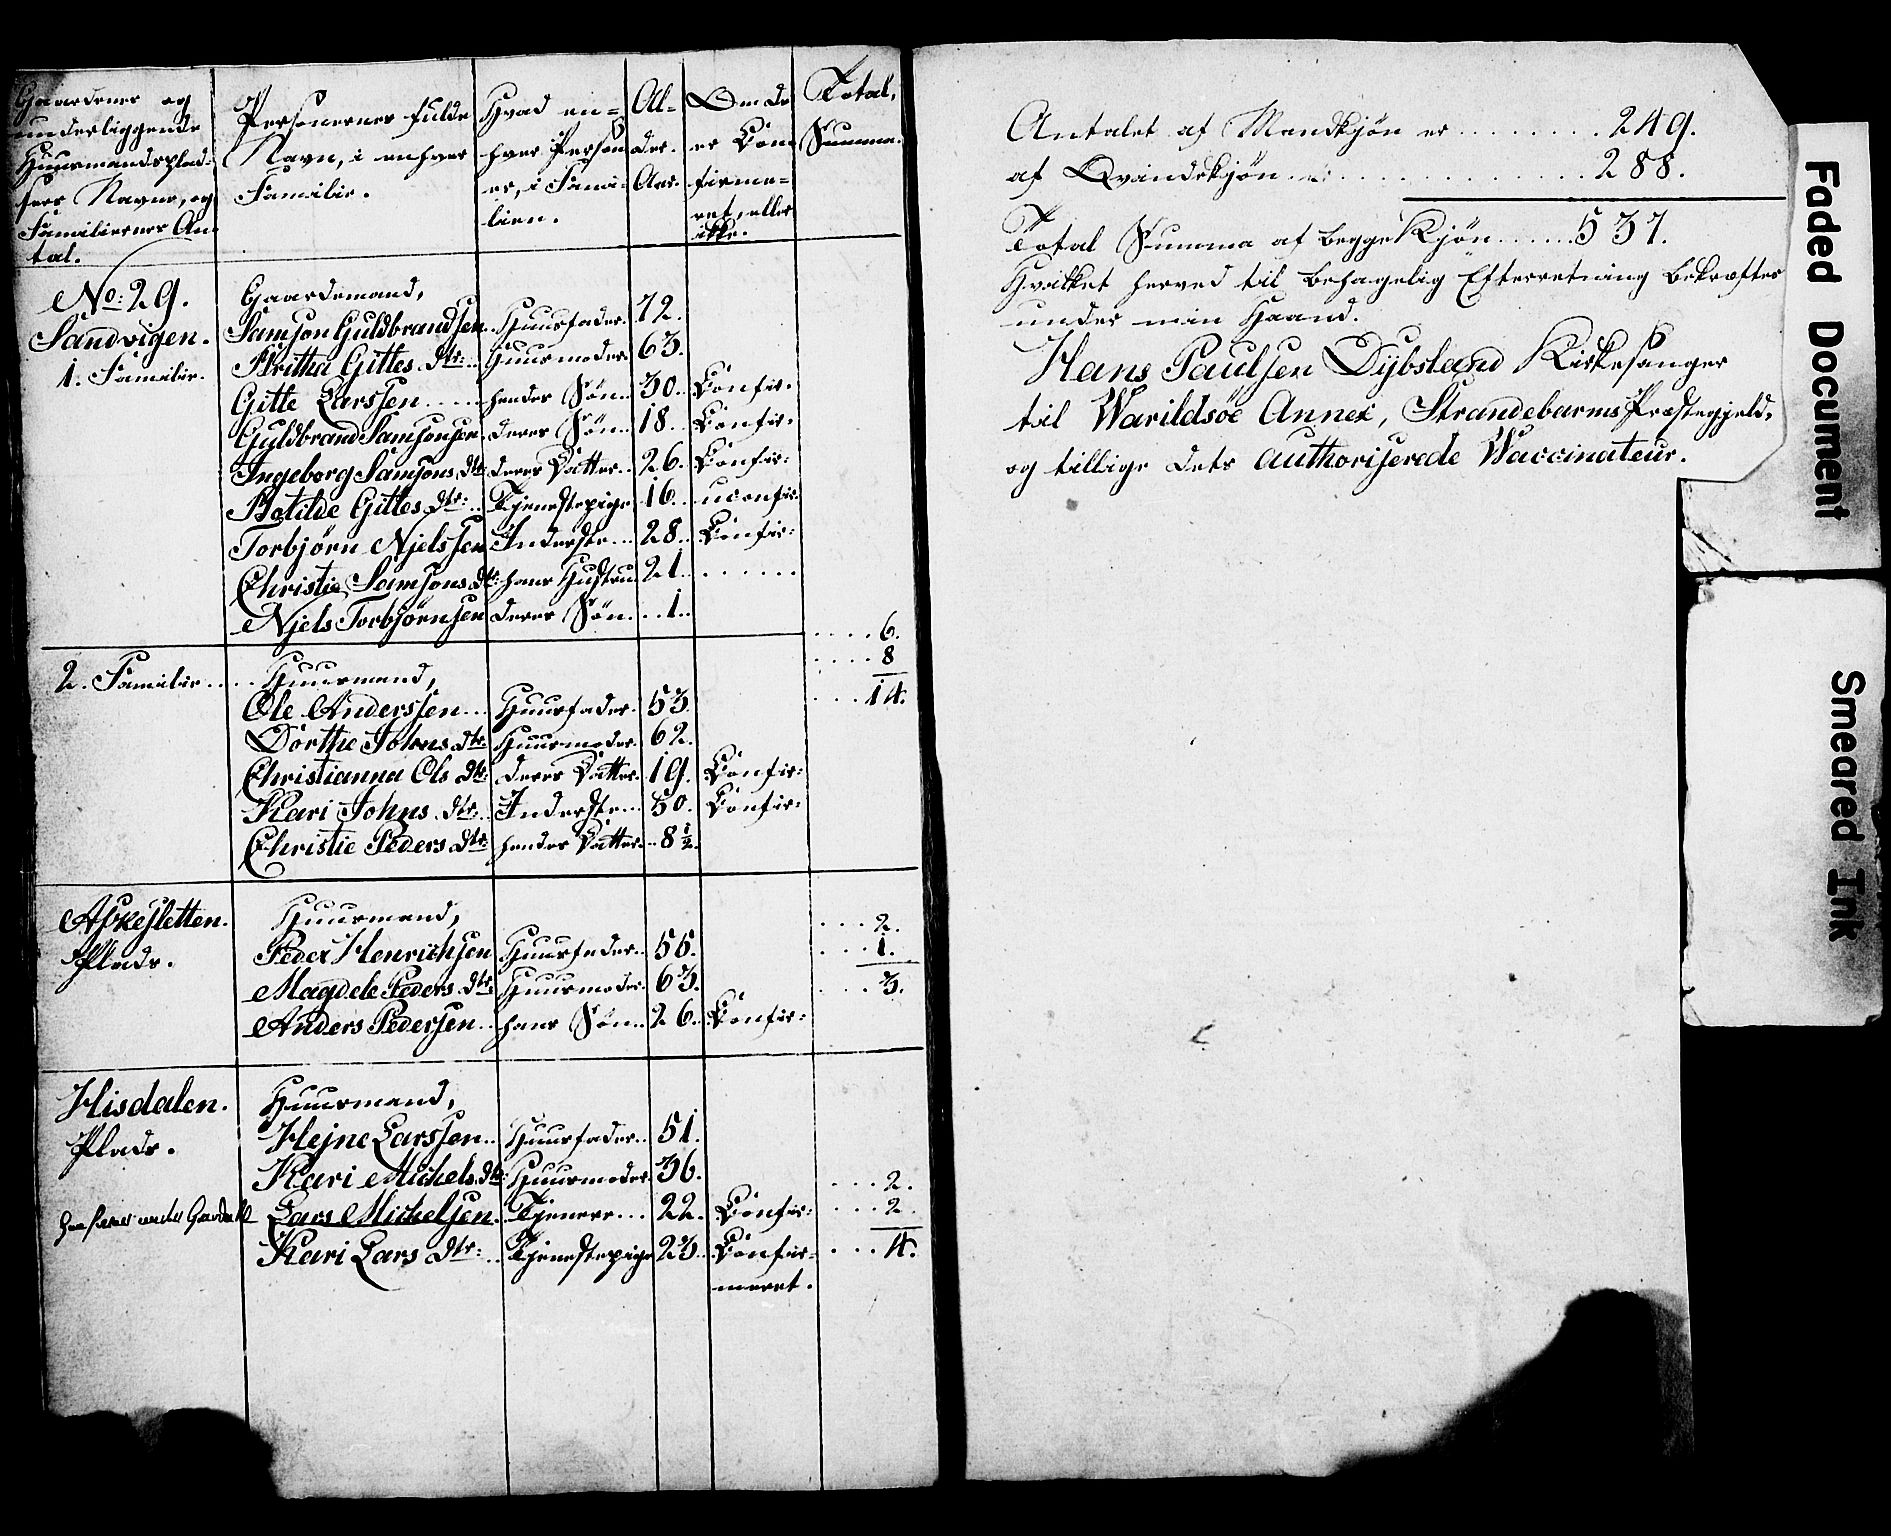 Gaardenes og
underliggende
Huusmandsplad-
sers Navne, og
Familiernes An-
tal.
Personernes fulde
Navn, i enhver
Familie.
Hvad en-
hver Person
er, i Fami-
lien.
Al-
der.
Aar.
Om de
er Con-
firme-
ret, eller
ikke.
Total,
Summa.
No: 29. Gaardemand,
Sandvigen. Samson Guldbrandsen. Huusfader. 72.
1. Familie. Britha Gittes Dtr: Huusmoder 63.
Gitte Larssen hendes Søn 30. Confir:
Guldbrand Samsonsen deres Søn 18. Confir:
Ingeborg Samsons Dtr: deres Datter 26. Confir:
Botilde Gittes Dtr: Tjenestepige 16. uconfir:
Torbjörn Njelssen Inderste 28. Confir:
Christie Samsons Dtr: hans Hustru 21.
Njels Torbjörnsen deres Søn 1.
6.
8
14.
2. Familie Huusmand,
Ole Anderssen Huusfader 53.
Dorthe Johns Dtr: Huusmoder 62.
Christianna Ols Dtr: deres Datter 19. Confir:
Kari Johns Dtr: Inderste 50. Confir:
Christie Peders Dtr: hendes Datter 8 1/2.
Askesletten. Huusmand,
Plads. Peder Henrichsen Huusfader 55.
Magdele Peders Dtr: Huusmoder 63.
Anders Pedersen hans Søn 26. Confir:
2.
1.
3.
Hisdalen. Huusmand,
Plads. Hejne Larssen Huusfader 51.
Kari Michels Dtr: Huusmoder 36.
Lars Michelsen. Tjener 22. Confir:
Kari Lars Dtr: Tjenestepige 23. Confir-
meret.
2.
2.
4.
Antalet af Mandkjøn er 249.
af Qvindekjøn 288.
Total Summa af begge Kjøn 537.
Hvilket herved til behagelig Efterretning bekræftes
under min Haand.
Hans Paulsen Dybsland Kirkesanger
til Warildsöe Annex, Strandebarms Præstegjeld,
og tillige dets authoriserede Vaccinateur.
Faded Document
Smeared Ink